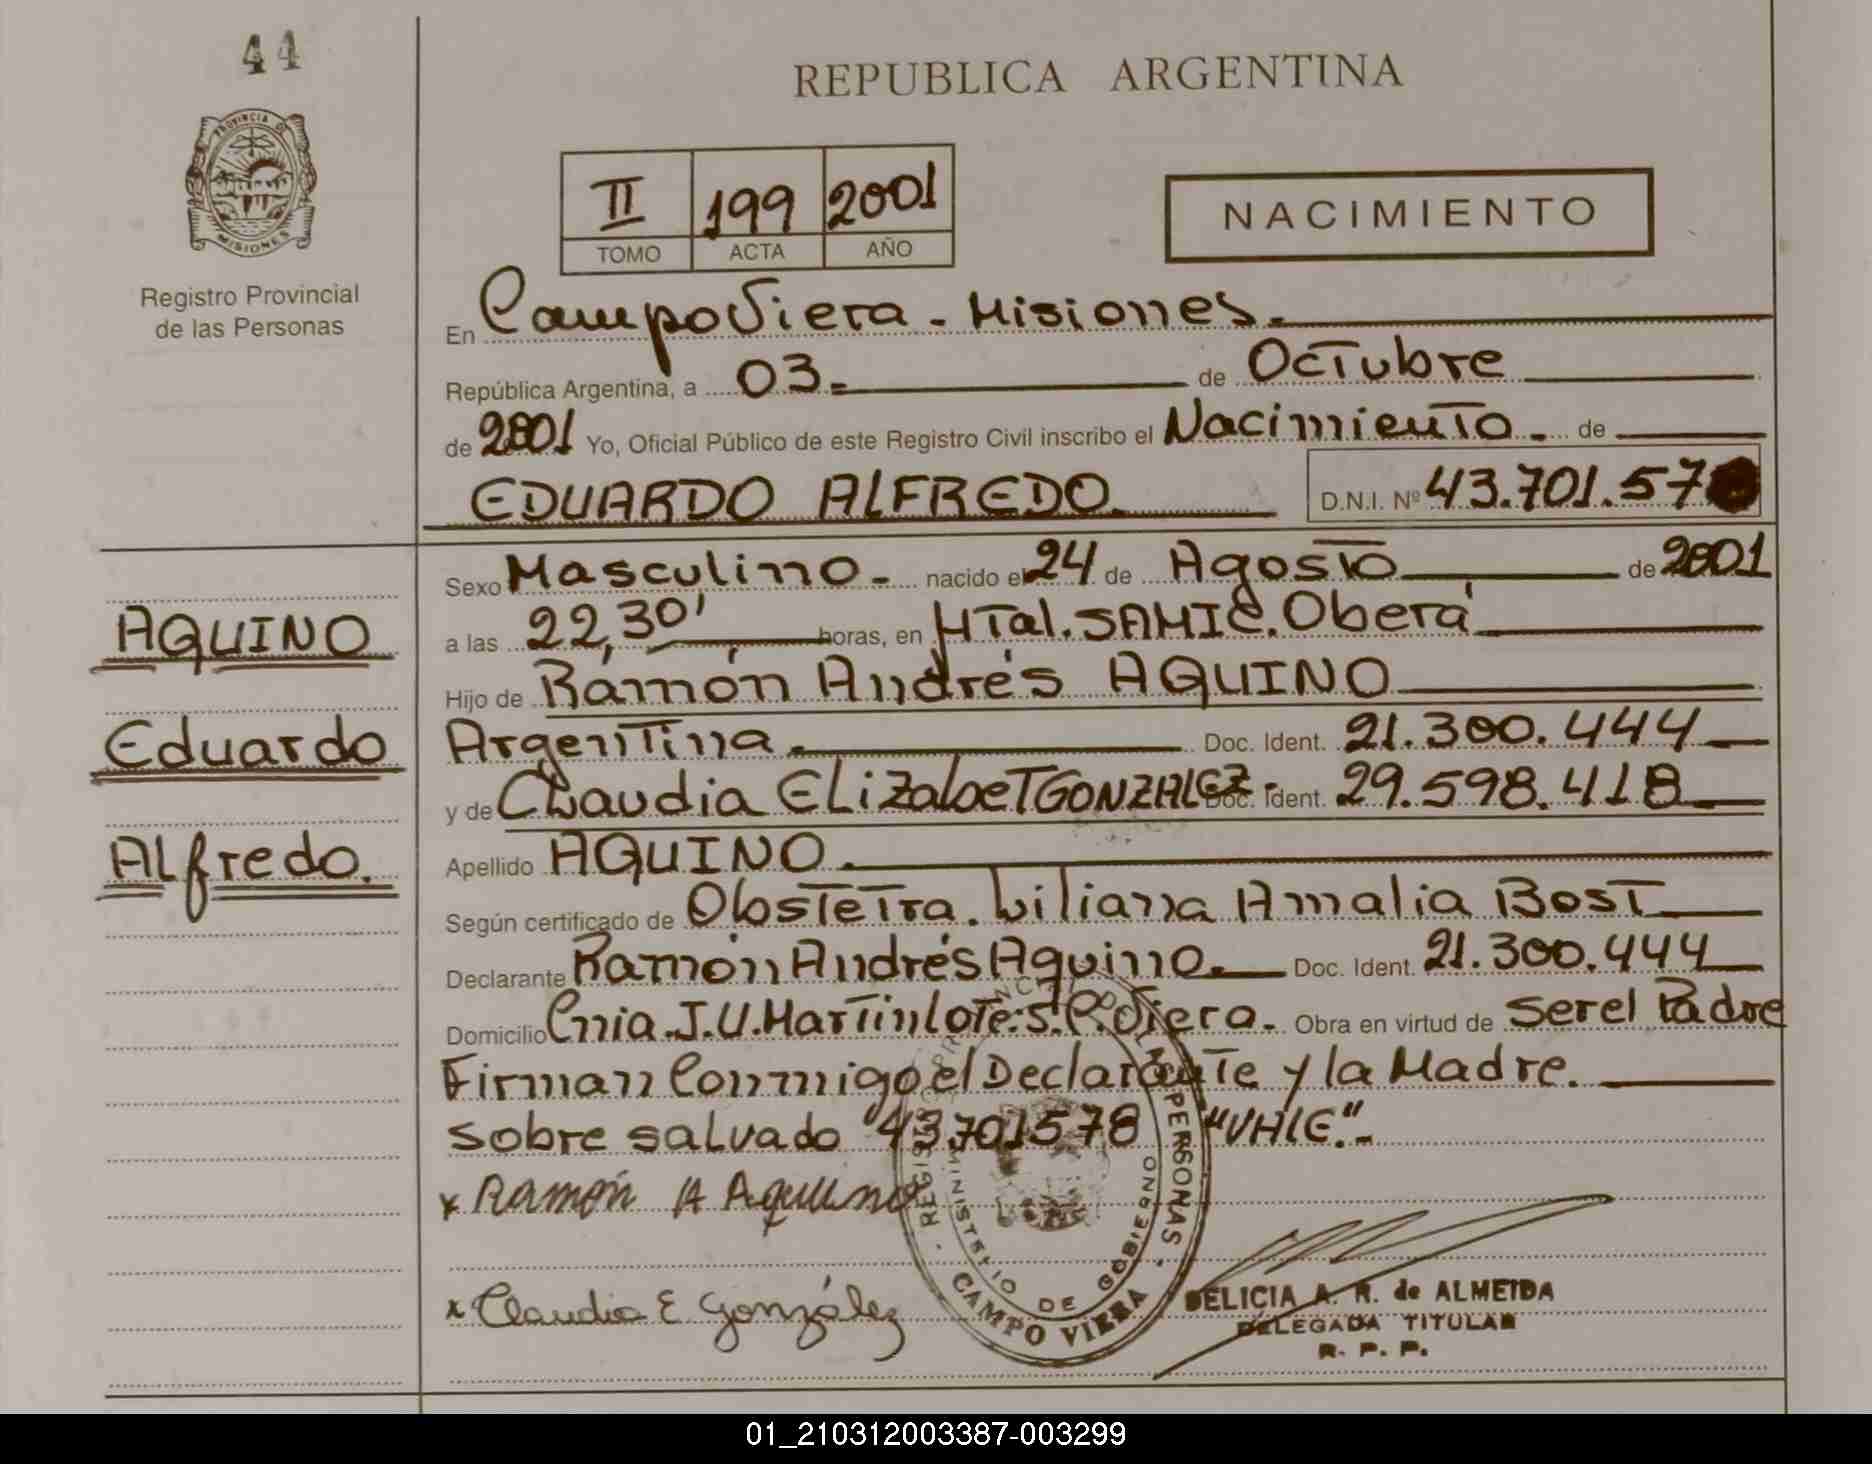 44
PROVINCIA DE
MISIONES
Registro Provincial
de las Personas
REPUBLICA ARGENTINA
II 199 2001
TOMO ACTA AÑO
NACIMIENTO
En Campo Viera - Misiones.
República Argentina, a 03. de Octubre
de 2001 Yo, Oficial Público de este Registro Civil inscribo el Nacimiento. de
EDUARDO ALFREDO. D.N.I. Nº 43.701.57
Sexo Masculino - nacido el 24 de Agosto de 2001
AQUINO
a las 22,30' horas, en HTal. SAMIC. Oberá
Hijo de Ramón Andrés AQUINO
Eduardo
Argentina. Doc. Ident. 21.300.444
y de Claudia Elizabet GONZALEZ. Doc. Ident. 29.598.418
Alfredo.
Apellido AQUINO.
Según certificado de Obstetra. Liliana Amalia Bost
Declarante Ramón Andrés Aquino. Doc. Ident. 21.300.444
Domicilio Cnia. J.U. Martin lote: 5. C. Viera. Obra en virtud de Ser el Padre
Firman Conmigo el Declarante y la Madre.
Sobre salvado "43701578 "VALE."-
x Ramón A Aquino
x Claudia E González
REGISTRO PROVINCIAL DE LAS PERSONAS
MINISTERIO DE GOBIERNO
CAMPO VIERA
DELICIA A. R. de ALMEIDA
DELEGADA TITULAR
R. P. P.
01_210312003387-003299